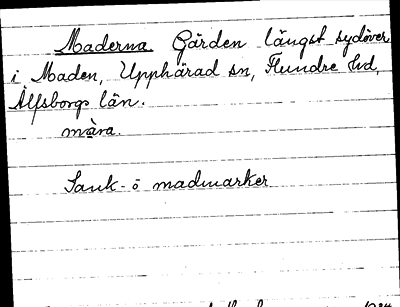 Maderna. Gärden längst sydöver
i Maden, Upphärad sn, Flundre hd,
Älfsborgs län.
màra.
Sank- o madmarker